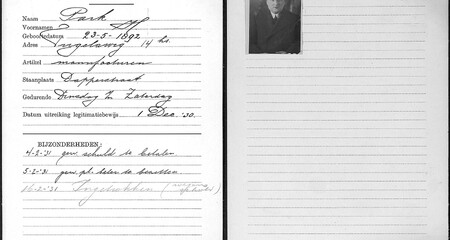 Naam Park
Voornamen
Geboortedatum 23-5-1892
Adres 14 hs.
Artikel manufacturen
Staanplaats Dapperstraat
Gedurende Dinsdag t/m Zaterdag
Datum uitreiking legitimatiebewijs 1 Dec. '30.
BIJZONDERHEDEN:
4-2-'31 gew. schuld te betalen
5-2-'31 gew. pl. beter te bezetten
16-2-'31 Ingetrokken